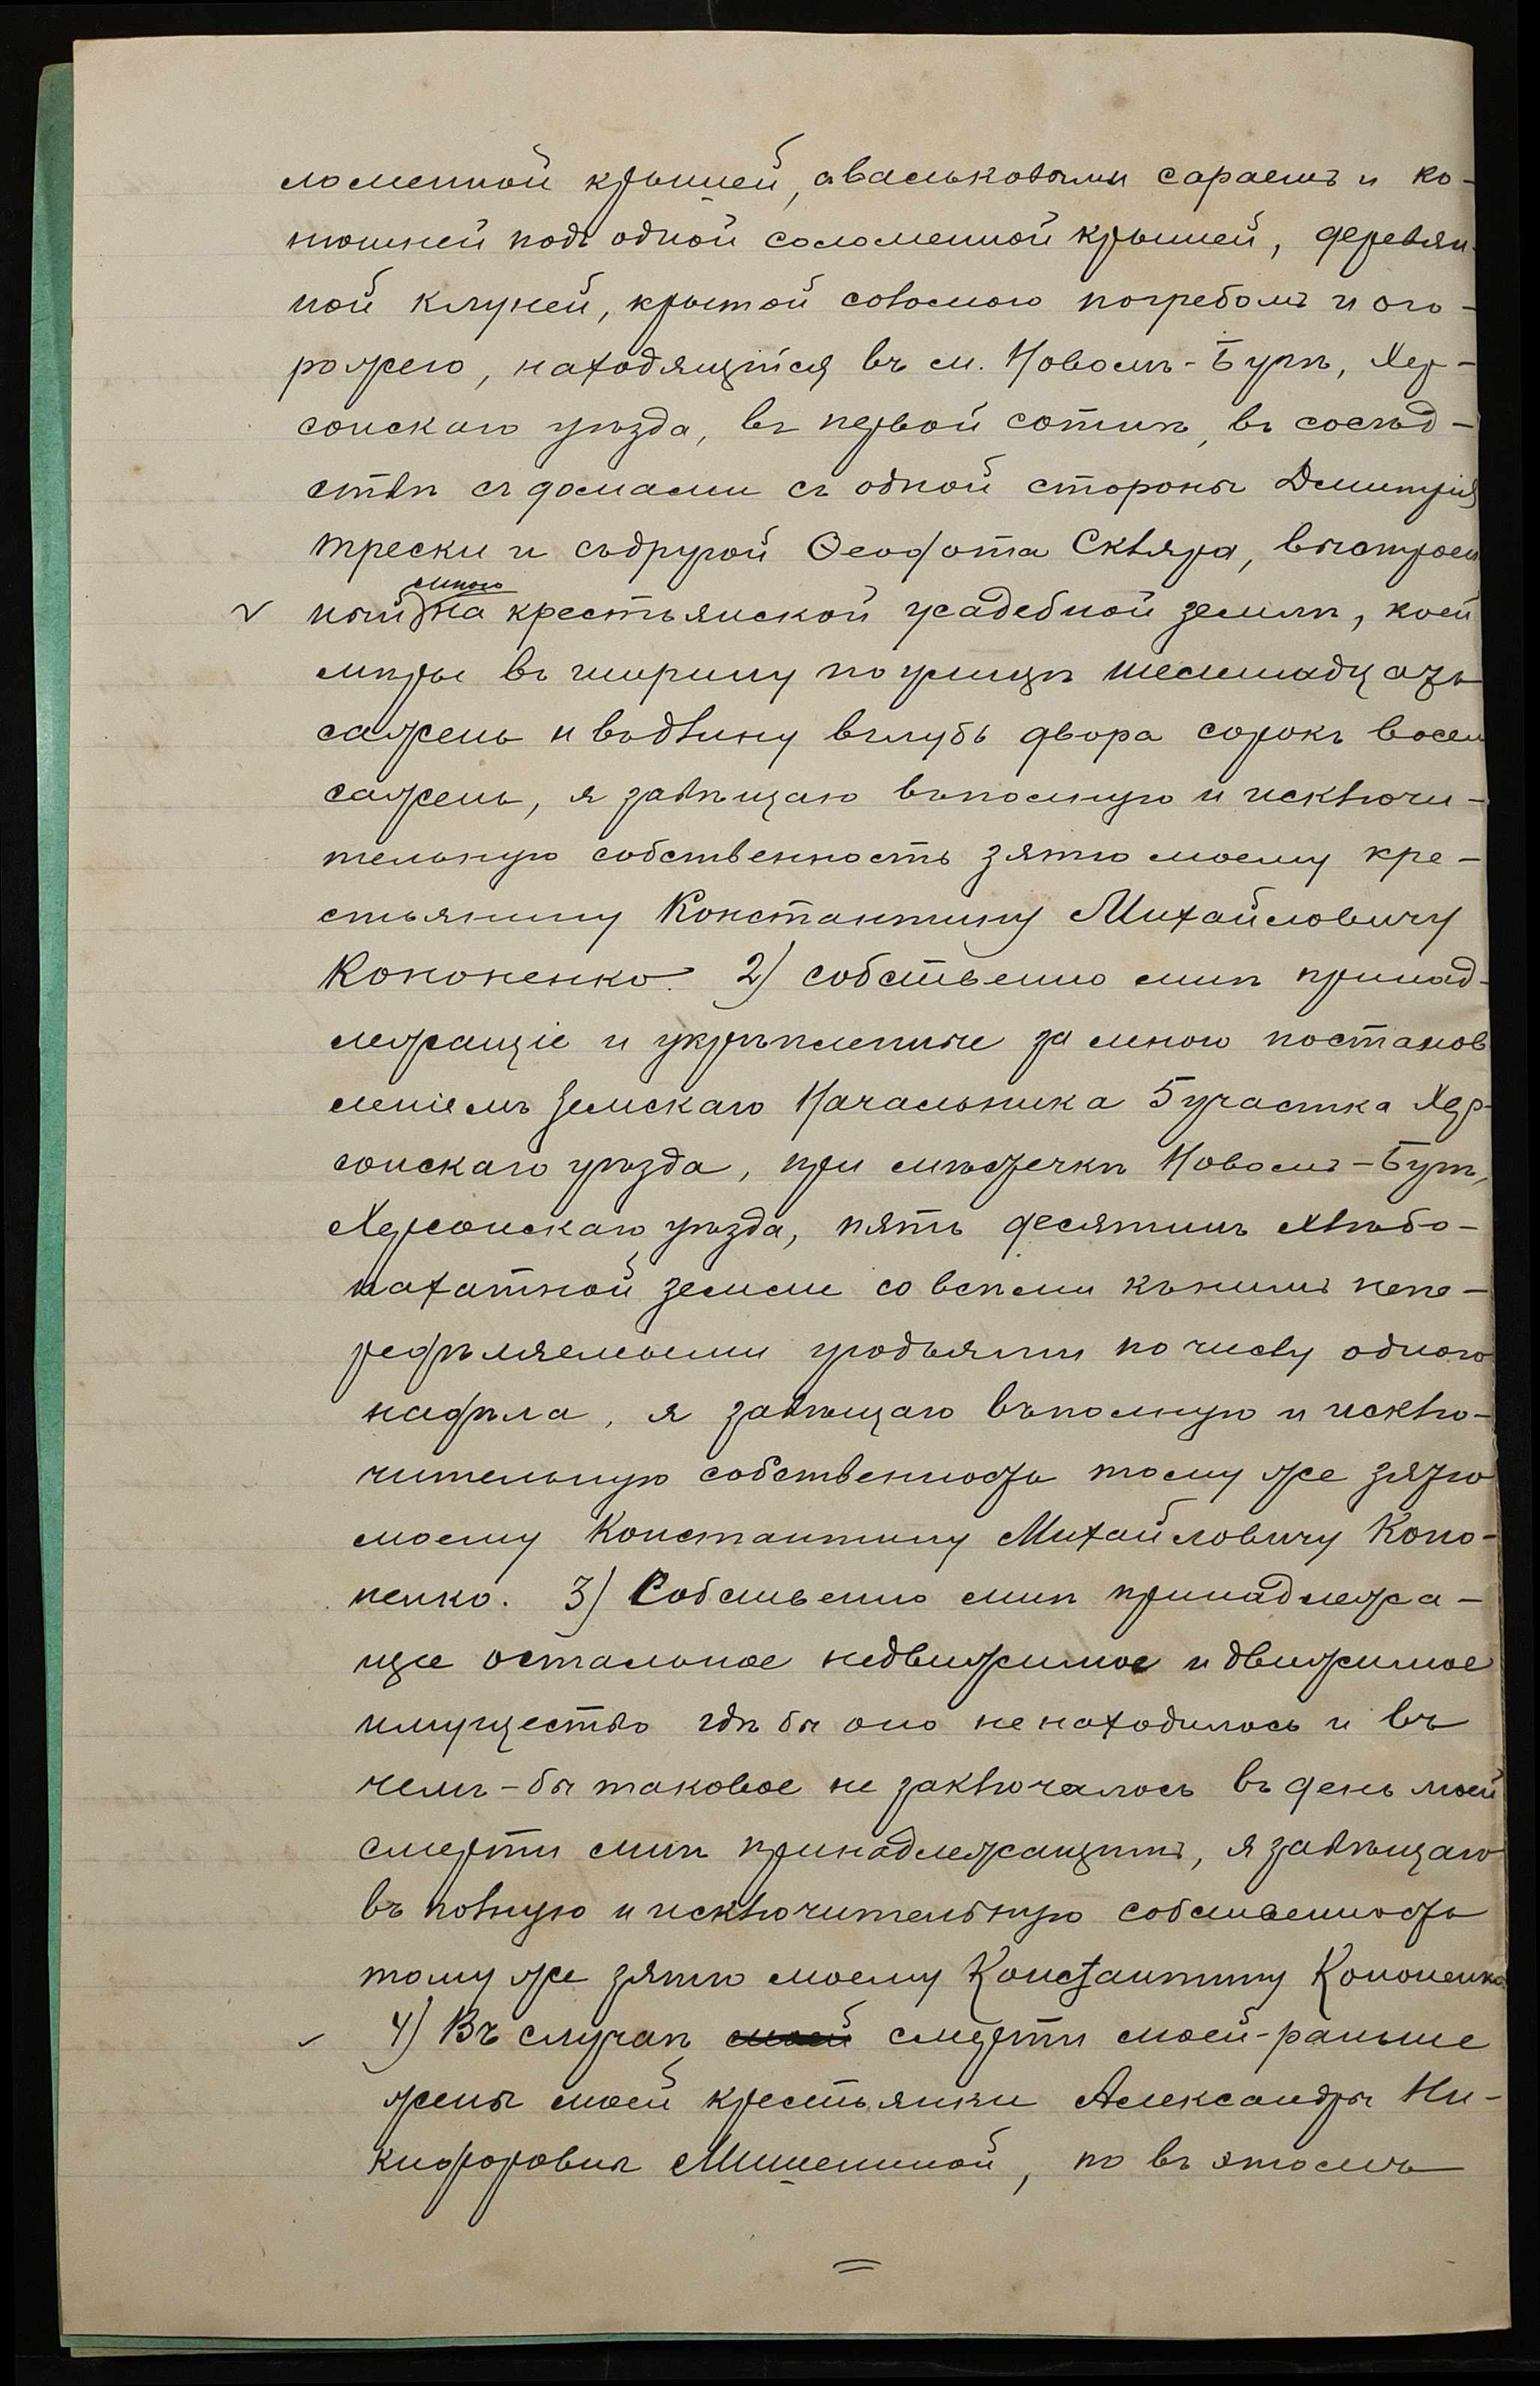 ломенной крышей, авальковыми сараемъ и ко-
нюшней подъ одной соломенной крышей, деревян-
ной клуней, крытой соломою погребомъ и ого-
рожею, находящійся въ м. Новомъ-Бугѣ, Хер-
сонскаго уѣзда, въ первой сотнѣ, въ сосѣд-
ствѣ съ домами съ одной стороны Дмитрія
Трески и съдругой Ѳеодота Скляра, выстроен
ный мною на крестьянской усадебной землѣ, коей
мѣры въ ширину по улицѣ шестнадцать
сажень и въдлину вглубь двора сорокъ восемь
сажень, я завѣщаю въполную и исключи-
тельную собственность зятю моему кре-
стьянину Константину Михайловичу
Кононенко. 2) собственно мнѣ принад-
лежащіе и укрѣпленные за мною постанов
леніемъ Земскаго Начальника 5 участка Хер-
сонскаго уѣзда, при мѣстечкѣ Новомъ-Бугѣ,
Херсонскаго уѣзда, пять десятинъ хлѣбо-
пахатной земли со всѣми къ нимъ непе-
редѣляемыми угодьями по числу одного
надѣла, я завѣщаю въполную и исклю-
чительную собственность тому же зятю
моему Константину Михайловичу Коно-
ненко. 3) Собственно мнѣ принадлежа-
щее остальное недвижимое и движимое
имущество гдѣ бы оно не находилось и въ
чемъ-бы таковое не заключалось въ день моей
смерти мнѣ принадлежащимъ, я завѣщаю
въ полную и исключительную собственность
тому же зятю моему Константину Кононенко.
4) Въ случаѣ моей смерти моей-раньше
жены моей крестьянки Александры Ни-
кифоровны Мишениной, то въ этомъ